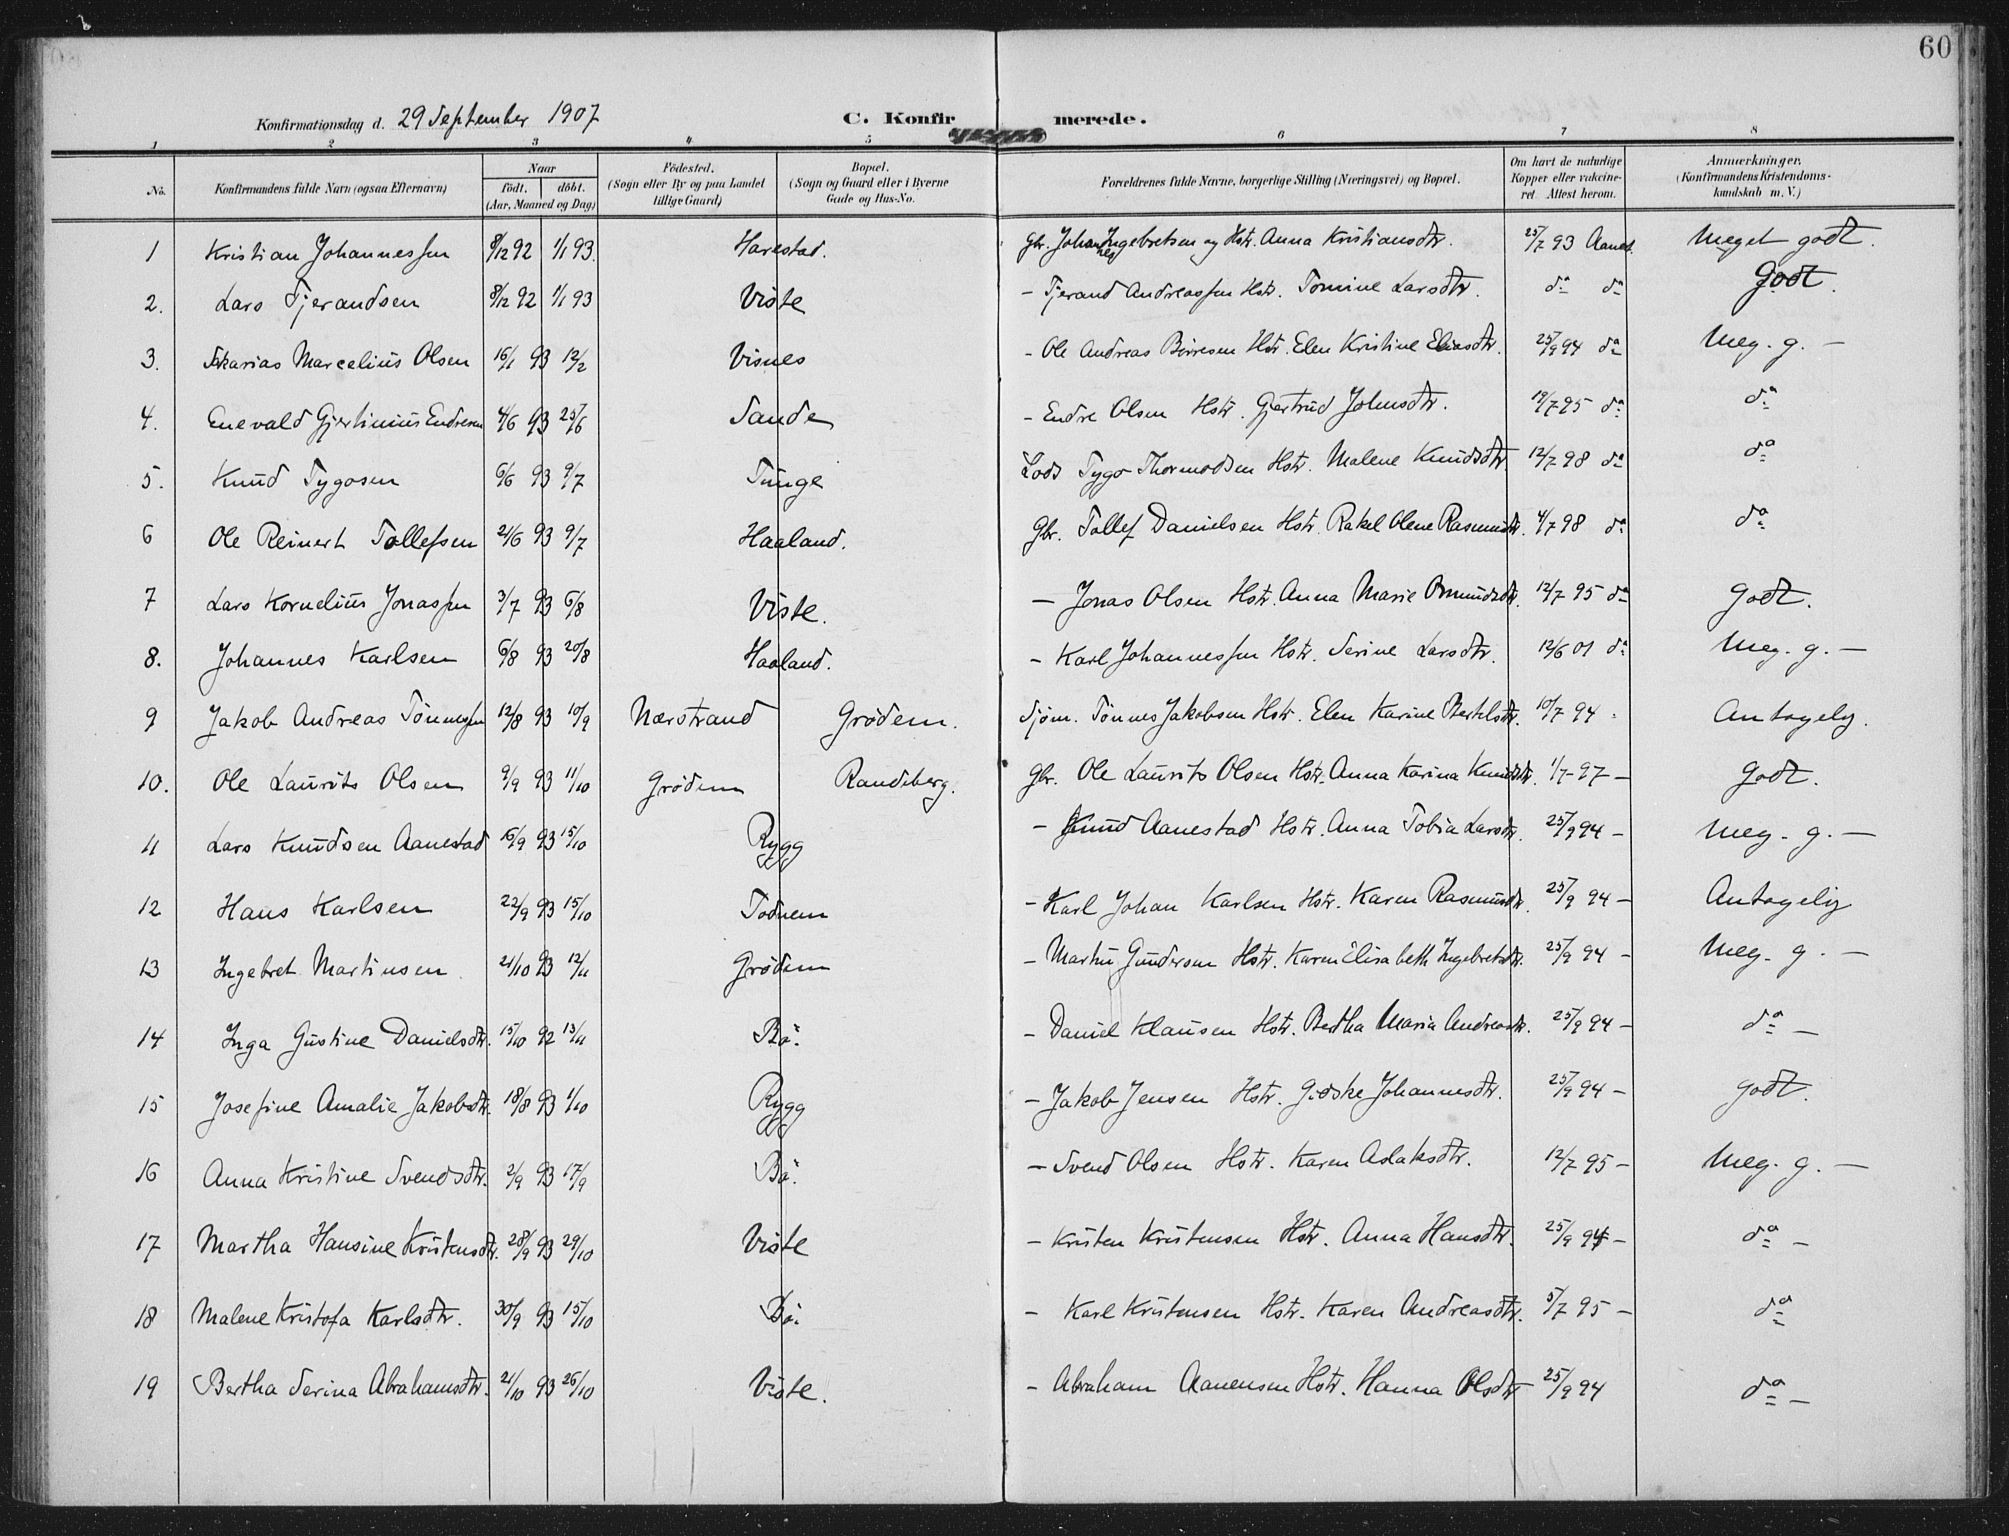 60
Konfirmationsdag d. 29 September 1907 C. Konfirmerede.
1 2 3 4 5 6 7 8
No. Konfirmandens fulde Navn (ogsaa Efternavn) Naar födt. döbt. (Aar, Maaned og Dag) Födested. (Sogn eller By og paa Landet tillige Gaard) Bopæl. (Sogn og Gaard eller i Byerne Gade og Hus-No. Forældrenes fulde Navne, borgerlige Stilling (Næringsvei) og Bopæl. Om havt de naturlige Kopper eller vakcineret. Attest herom. Anmærkninger. (Konfirmandens Kristendomskundskab m. V.)
1 Kristian Johannessen 8/12 92 1/1 93. Harestad. Gbr. Johannes Ingebretsen og Hstr. Anna Kristiansdtr. 25/7 93 Aanest. Meget godt.
2. Lars Tjerandsen 8/12 92 1/1 93 Viste - Tjerand Andreassen Hstr. Tomine Larsdtr. do do Godt.
3. Sakarias Marcelius Olsen 16/1 93 12/2 Visnes - Ole Andreas Börresen Hstr. Elen Kristine Eliasdtr. 25/9 94 do Meg. g. -
4. Enevald Gjertinius Endresen 4/6 93 25/6 Sande - Endre Olsen Hstr. Gjertrud Johnsdtr. 19/7 95 do do
5. Knud Tygosen 6/6 93 9/7 Tunge Lods Tygo Thormodsen Hstr. Malene Knudsdtr. 12/7 98 do do
6 Ole Reinert Tollefsen 21/6 93 9/7 Haaland. Gbr. Tollef Danielsen Hstr. Rakel Olene Rasmusdtr. 4/7 98 do do
7 Lars Kornelius Jonassen 3/7 93 6/8 Viste. - Jonas Olsen Hstr. Anna Marie Omundsdtr. 12/7 95 do godt.
8. Johannes Karlsen 6/8 93 20/8 Haaland. - Karl Johannessen Hstr. Serine Larsdtr. 12/6 01 do Meg. g. -
9 Jakob Andreas Tönnessen 12/8 93 10/9 Nærstrand Grødem. Sjøm. Tönnes Jakobsen Hstr. Elen Karine Bertelsdtr. 10/7 94 Antagelig.
10. Ole Laurits Olsen 9/9 93 11/10 Grödem Randeberg. Gbr. Ole Laurits Olsen Hstr. Anna Karina Knudsdtr. 1/7 97 - Godt.
11 Lars Knudsen Aanestad 16/9 93 15/10 Rygg - Knud Aanestad Hstr. Anna Tobia Larsdtr. 25/9 94 - Meg. g. -
12 Hans Karlsen 22/9 93 15/10 Todnem - Karl Johan Karlsen Hstr. Karen Rasmusdtr. 25/9 94 - Antagelig
13 Ingebret Martinsen 21/10 93 12/11 Grödem - Martin Gundersen Hstr. Karen Elisabeth Ingebretsdtr. 25/9 94 - Meg. g. -
14 Inga Gustine Danielsdtr. 15/10 92 13/11 Bö. - Daniel Klausen Hstr. Bertha Maria Andreasdtr. 25/9 94 - do -
15 Josefine Amalie Jakobsdtr. 18/8 93 1/10 Rygg - Jakob Jensen Hstr. Gidske Johannesdtr. 25/9 94 - godt.
16 Anna Kristine Svendsdtr. 2/9 93 17/9 Bö. - Svend Olsen Hstr. Karen Aslaksdtr. 12/7 95 - Meg. g. -
17 Martha Hansine Kristensdtr. 28/9 93 29/10 Viste - Kristen Kristensen Hstr. Anna Hansdtr. 25/9 94 - do -
18 Malene Kristofa Karlsdtr. 30/9 93 15/10 Bö. - Karl Kristensen Hstr. Karen Andreasdtr. 5/7 95 - do
19 Bertha Serina Abrahamsdtr. 21/10 93 26/10 Viste. - Abraham Aanensen Hstr. Hanna Olsdtr 25/9 94 do -